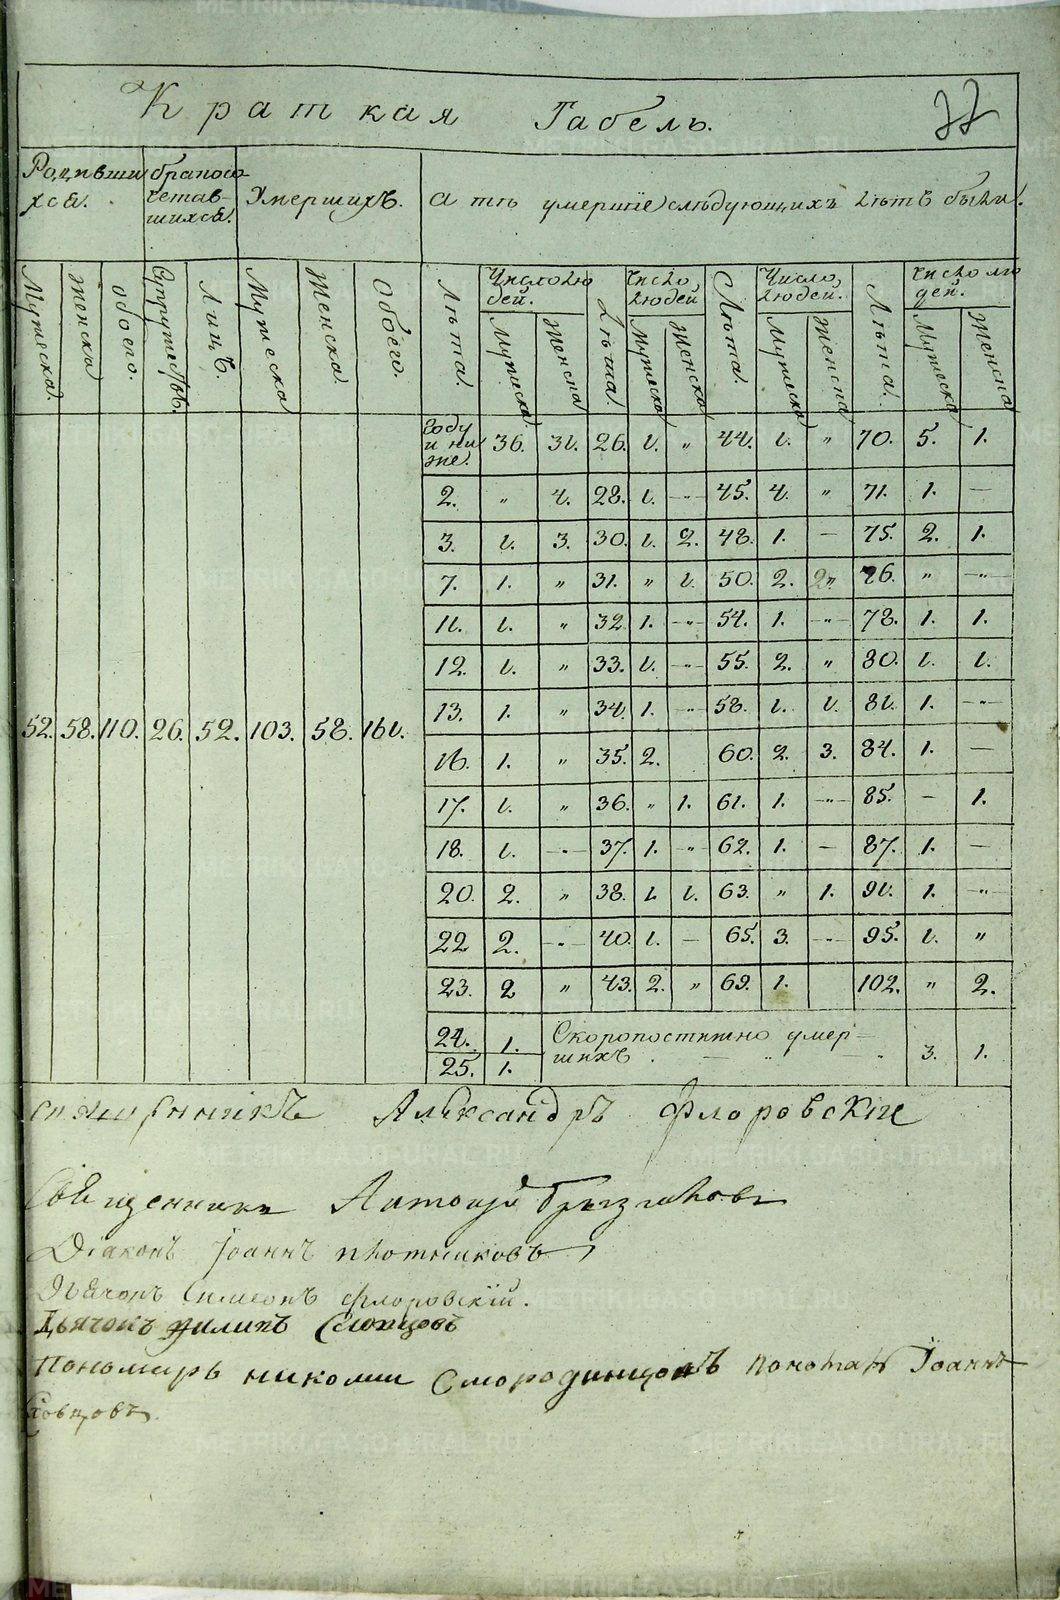 Краткая Табель.
77
Родивши
хся.
бракосо
четав-
шихся.
Умершихъ.
а тѣ умершіе слѣдующихъ лѣтъ были.
Мужеска.
Женска
обоего.
Супружествъ.
Лицъ.
Мужеска
Женска.
Обоего.
Лѣта.
Число лю
дей.
Мужеска
Женска
Лѣта.
Число
людей
Мужеска
Женска
Лѣта.
Число
людей.
Мужеска
Женска
Лѣта.
Число лю
дей.
Мужеска
Женска
году
и ни
же. 36. 31. 26. 1. „ 44. 1. „ 70. 5. 1.
2. „ 4. 28. 1. -„- 45. 4. „ 71. 1. —
3. 1. 3. 30. 1. 2. 48. 1. — 75. 2. 1.
7. 1. „ 31. „ 1. 50. 2. 2„ 76. „ -„-
11. 1. „ 32 1. -„- 54. 1. -„- 78. 1. 1.
12. 1. „ 33. 1. -„- 55. 2. „ 80. 1. 1.
13. 1. „ 34. 1. -„- 58. 1. 1. 81. 1. -„-
52. 58. 110. 26. 52. 103. 58. 161.
16. 1. „ 35. 2. 60. 2. 3. 84. 1. —
17. 1. „ 36. „ 1. 61. 1. -„- 85. — 1.
18. 1. -„- 37. 1. -„ 62. 1. — 87. 1. —
20. 2. „ 38. 1. 1. 63. „ 1. 91. 1. -„
22 2. -„- 40. 1. — 65. 3. -„- 95. 1. „
23. 2 „ 43. 2. „ 69. 1. 102. „ 2.
24. 1. Скоропостижно умер-
25. 1. шихъ. — „ — „ 3. 1.
священникъ Александръ Флоровскіи
Священникъ Антоній
Діаконъ Іоаннъ Плотниковъ
Дьячокъ Симеонъ Флоровскій.
Дьячокъ Филипъ Словцовъ
Пономарь николаи Смородинцовъ Іоаннъ
Словцовъ.
METRIKI.GASO-URAL.RU